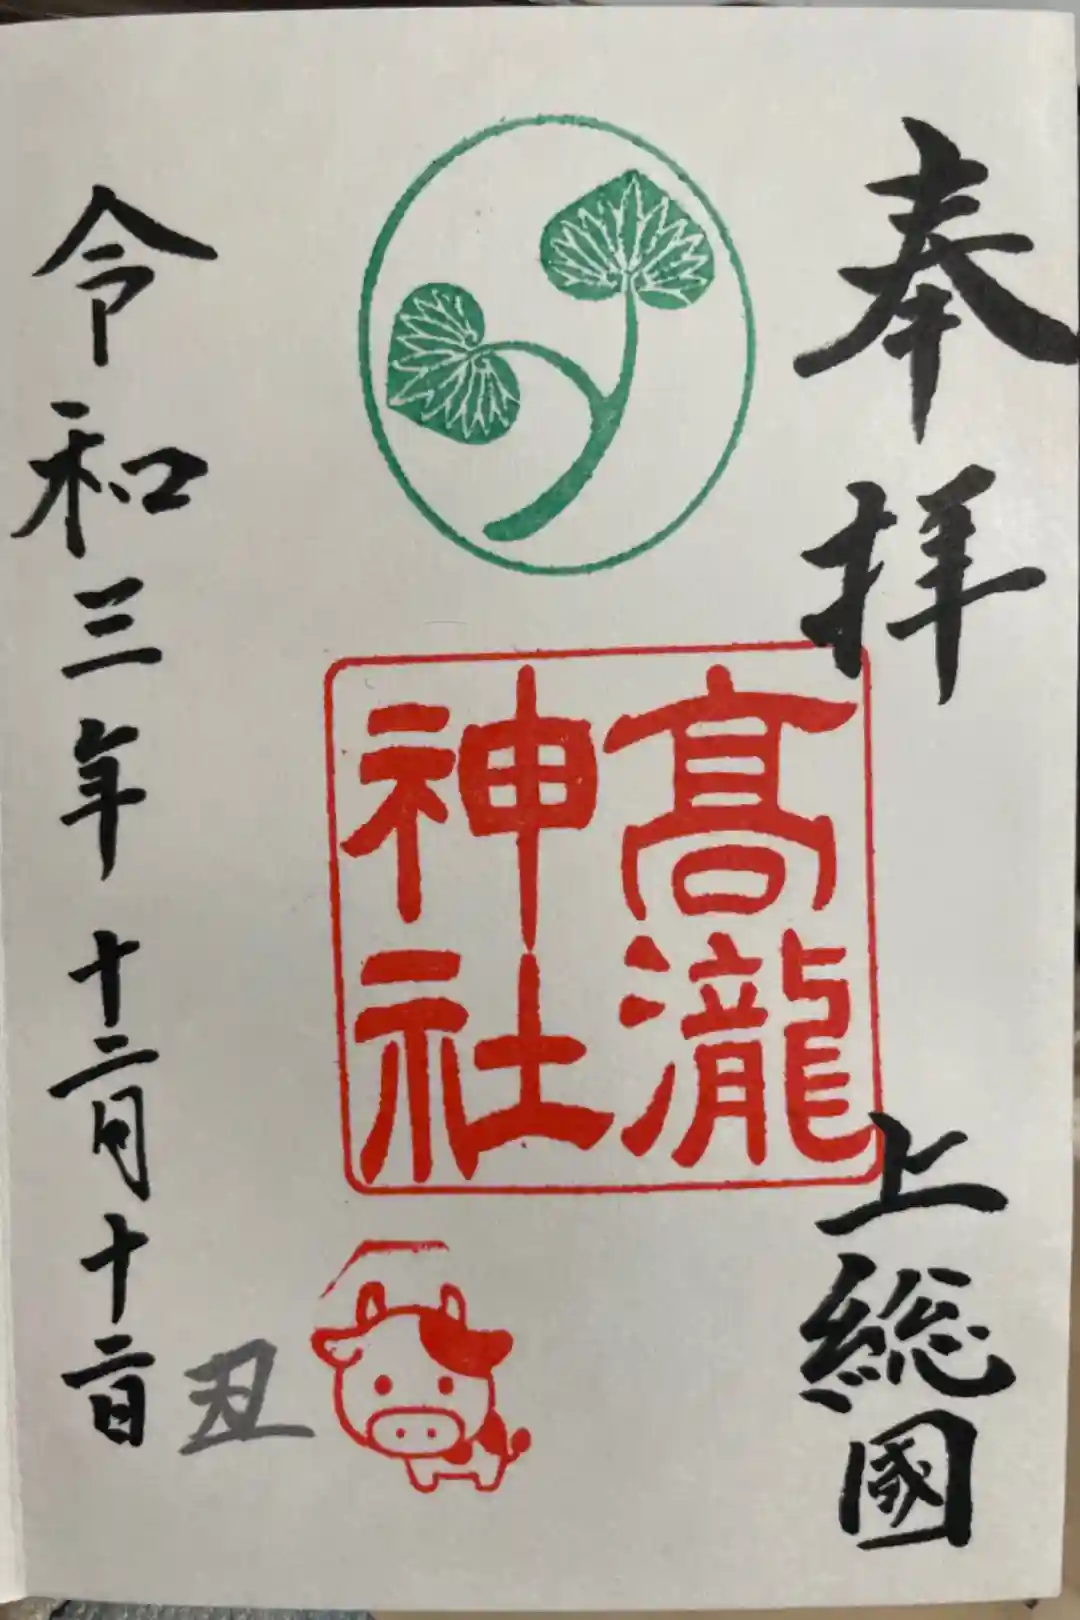 奉拝
上総國
髙瀧
神社
丑
令和三年十二月十二日